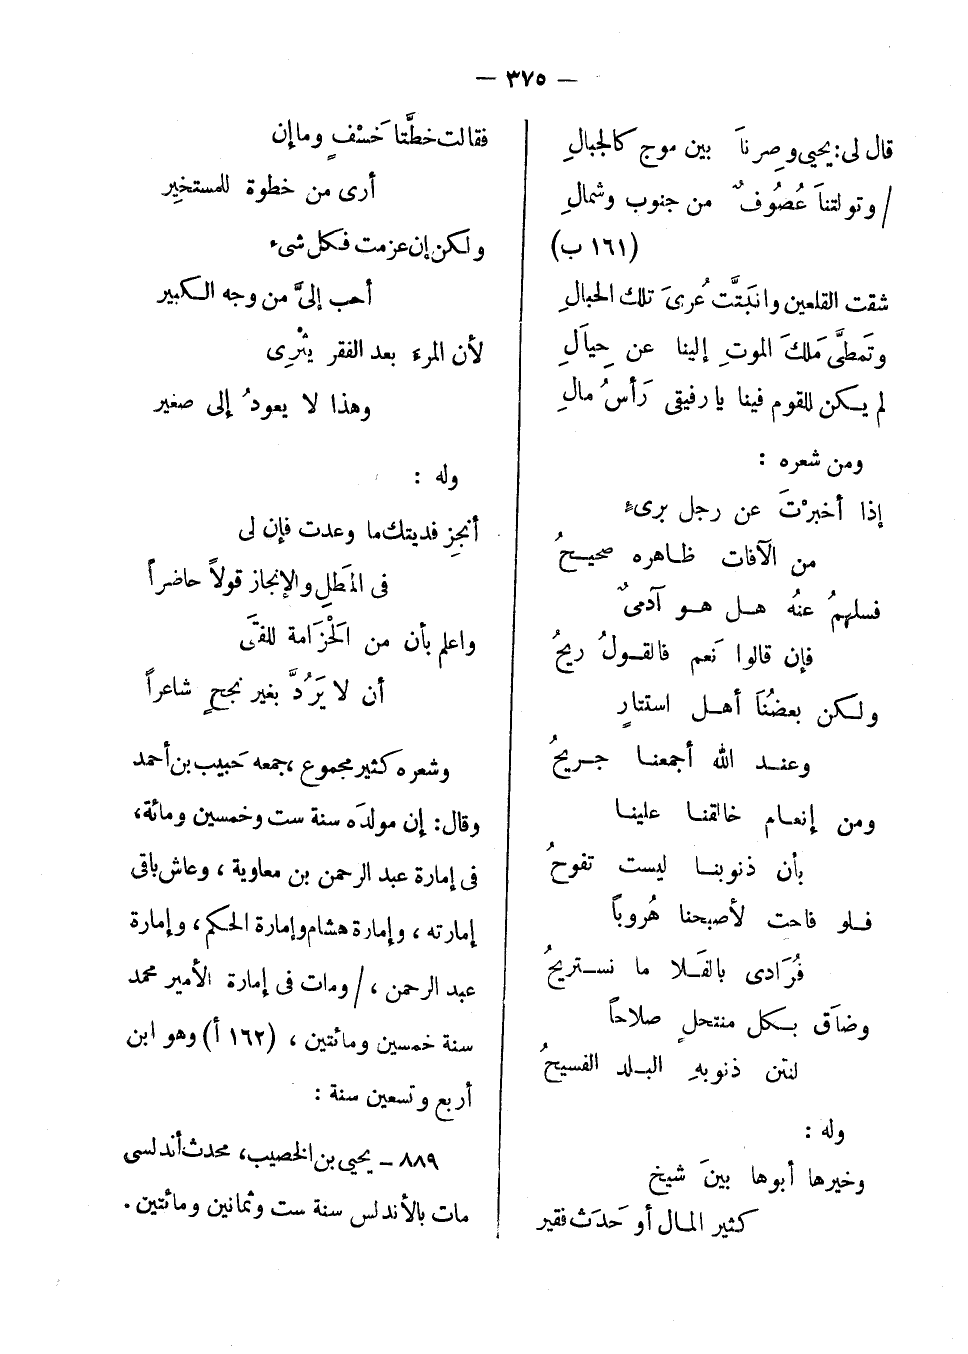 — ٣٧٥ —
قال لى: يحيى وصِرناَ بين موج كالجبالِ
/ وتولتناَ عُصُوفٌ من جنوب وشمالِ
(١٦١ ب)
شقت القلعين وانَبتَّت عُرىَ تلك الحبالِ
وتَمطَّى مَلكَ الموتِ إلينا عن حِيالِ
لم يكن للقوم فينا يا رفيقى رَأسُ مالِ
ومن شعره :
إذا أخبرْتَ عن رجل برىءٍ
من الآفات ظاهره صحيحُ
فسلهمُ عنهُ هل هو آدمىٌ
فإن قالوا نَعم فالقولُ ريحُ
ولكن بعضُنَا أهل استتارٍ
وعند الله أجمعنا جريحُ
ومن إنعام خالقنا علينا
بأن ذنوبنا ليست تفوحُ
فلو فاحت لأصبحنا هُروباً
فُرَادى بالفَلا ما نستريحُ
وضاَق بكل منتحلٍ صلاحاً
لنتن ذنوبهِ البلد الفسيحُ
وله :
وخيرها أبوها بينَ شيخ
كثير المال أو حَدَث فقير
فقالت خطَّتا خَسْفٍ وما إن
أرى من خطوة للمستخِير
ولكن إن عزمت فكل شىء
أحب إلىَّ من وجه الكبير
لأن المرءَ بعد الفقر يثْرِى
وهذا لا يعودُ إلى صغير
وله :
أنجِز فديتك ما وعدت فإن لى
فى المَطلِ والإنجاز قولاً حاضراً
واعلم بأن من الَحْزَامة للفتَى
أن لا يَرُدَّ بغير نجحٍ شاعراً
وشعره كثير مجموع ، جمعه حَبيب بن أحمد
وقال : إن مولدَه سنة ست وخمسين ومائة،
فى إمارة عبد الرحمن بن معاوية ، وعاش باقى
إمارته ، وإمارة هشام وإمارة الحكم ، وإمارة
عبد الرحمن ، / ومات فى إمارة الأمير محمد
سنة خمسين ومائتين ، (١٦٢ أ) وهو ابن
أربع وتسعين سنة :
٨٨٩ – يحيى بن الخصيب، محدث أندلسى
مات بالأندلس سنة ست وثمانين ومائتين .